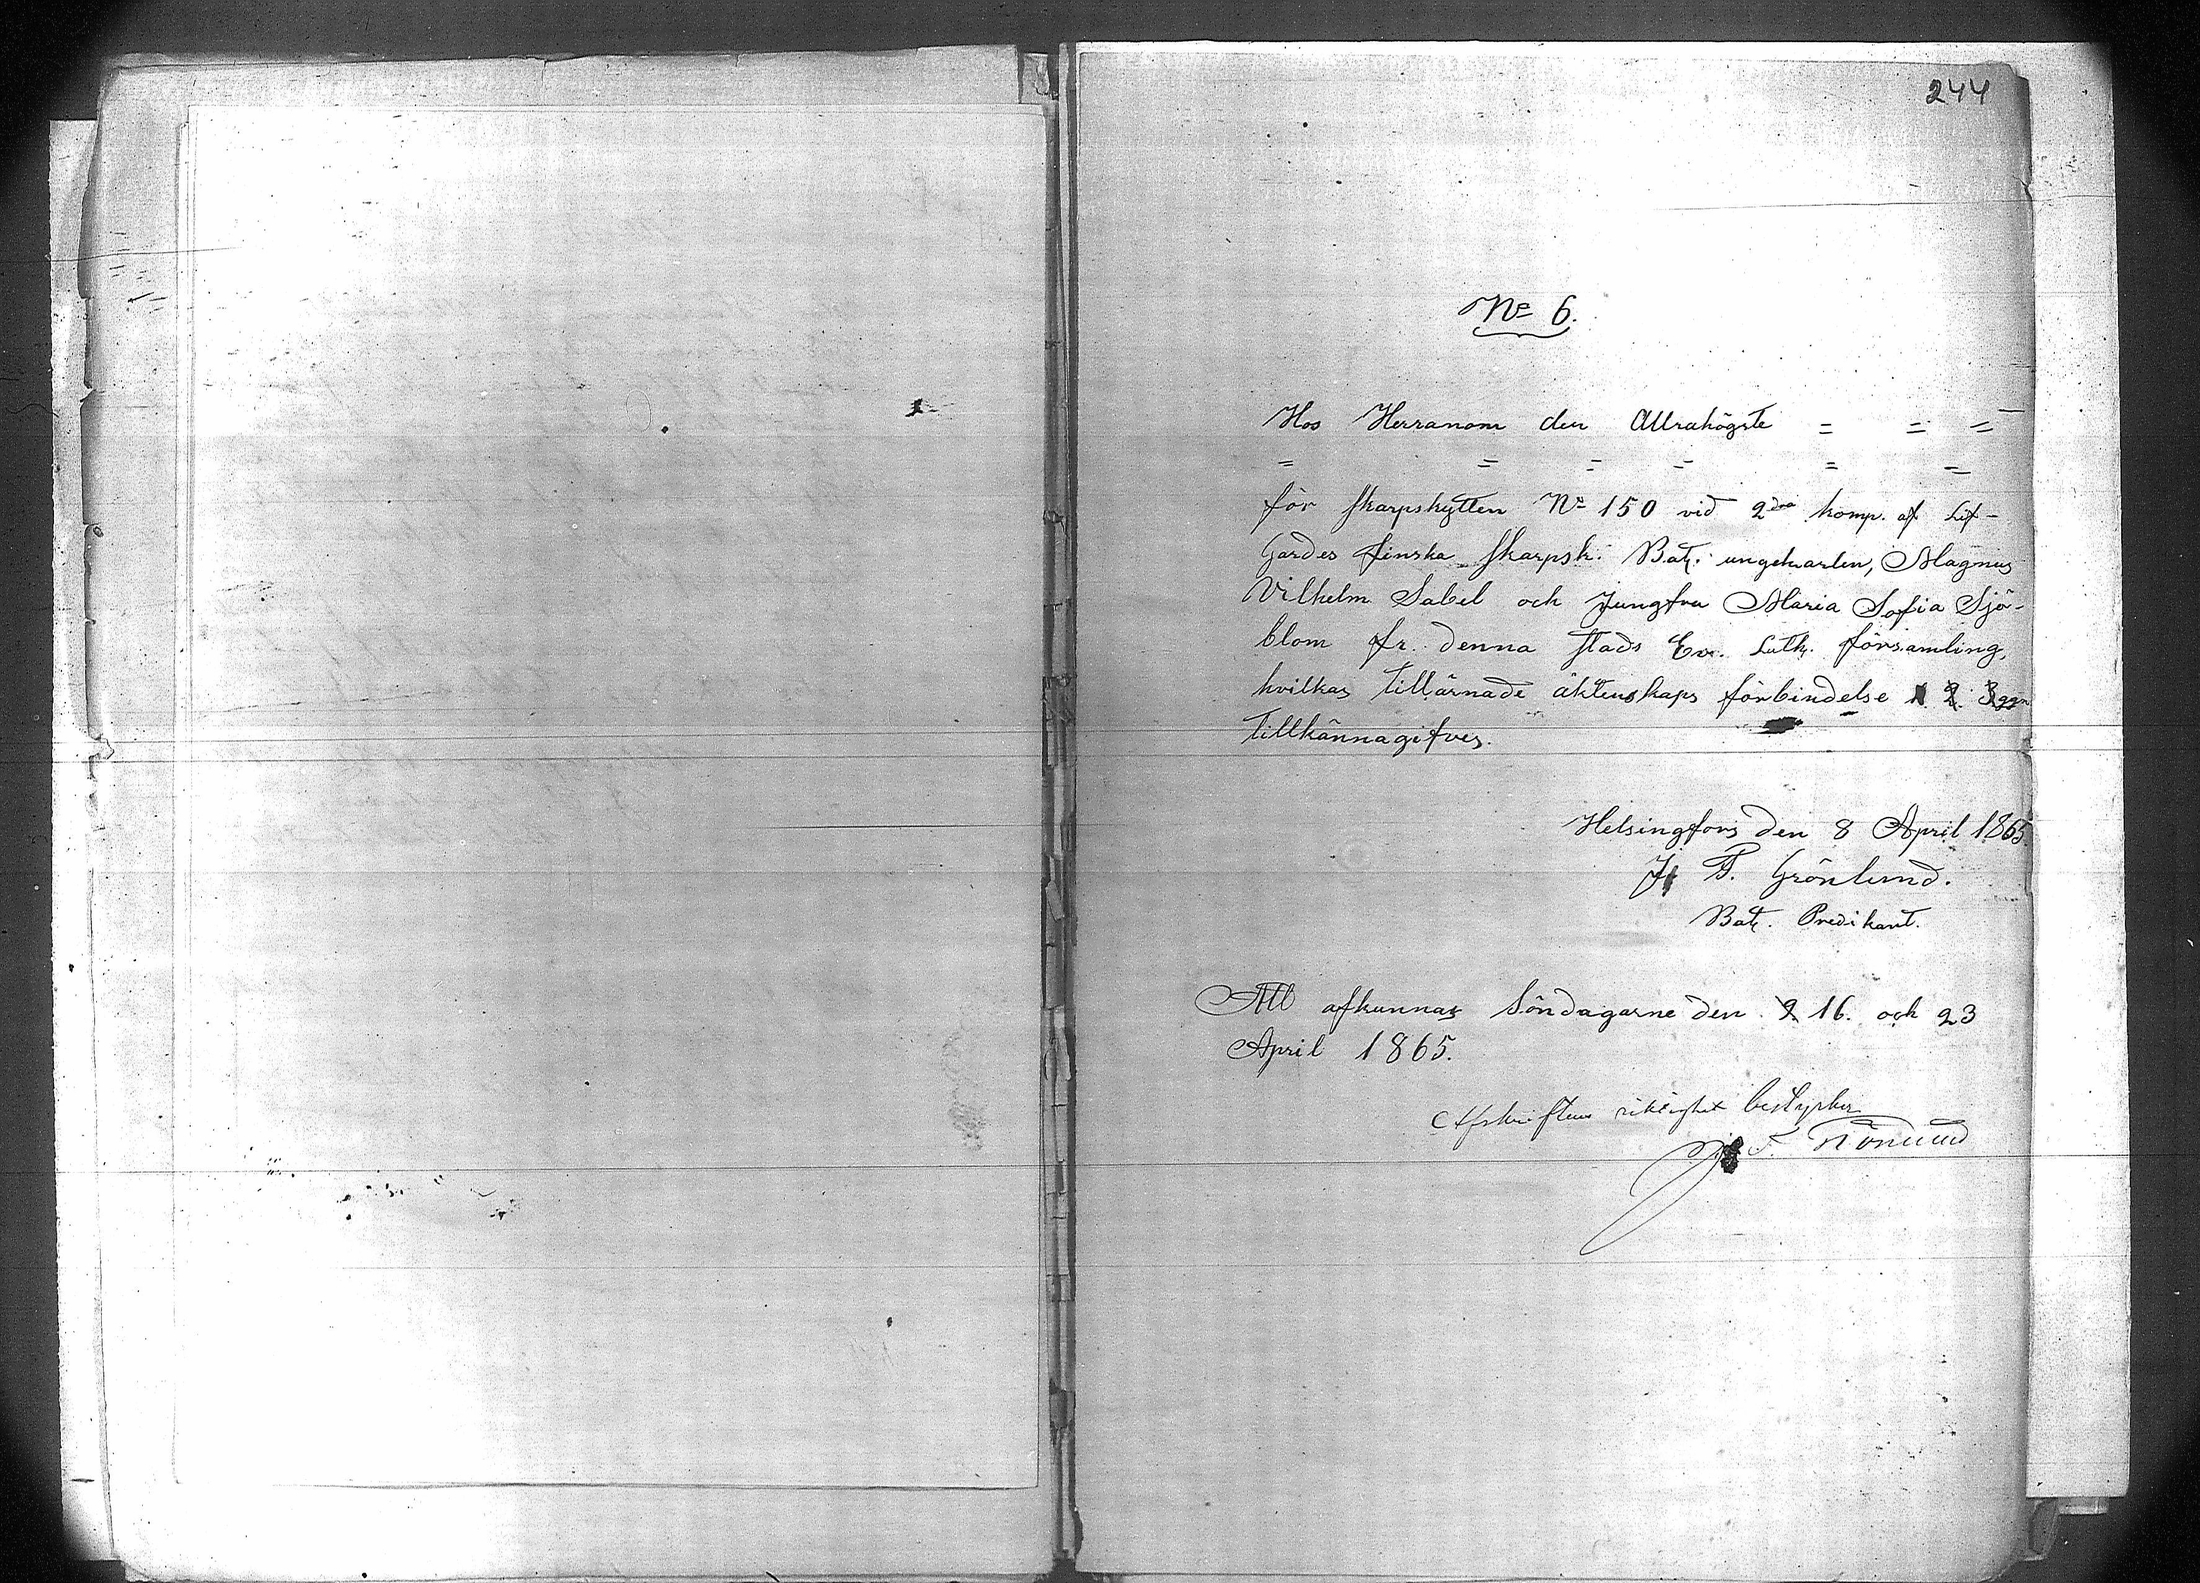 244
No 6.
Hos Herranom den Allrahögste = = =
= = = = = =
för Skarpskytten No 150 vid 2dra komp. af Lif-
Gardes finska Skarpsk. Batj: ungekarlen, Magnus
Vilhelm Sabel och Jungfru Maria Sofia Sjö-
blom fr. denna stads Ev. Luth. församling,
hvilkas tillärnade äktenskaps förbindelse 1 2. 3 ggn
tillkännagifves.
Helsingfors den 8 April 1865
F. Grönlund.
Batj. Predikant.
Att afkunnas Söndagarne den 9. 16. och 23
April 1865.
Afskriftens riktighet bestyrker
F. Grönlund